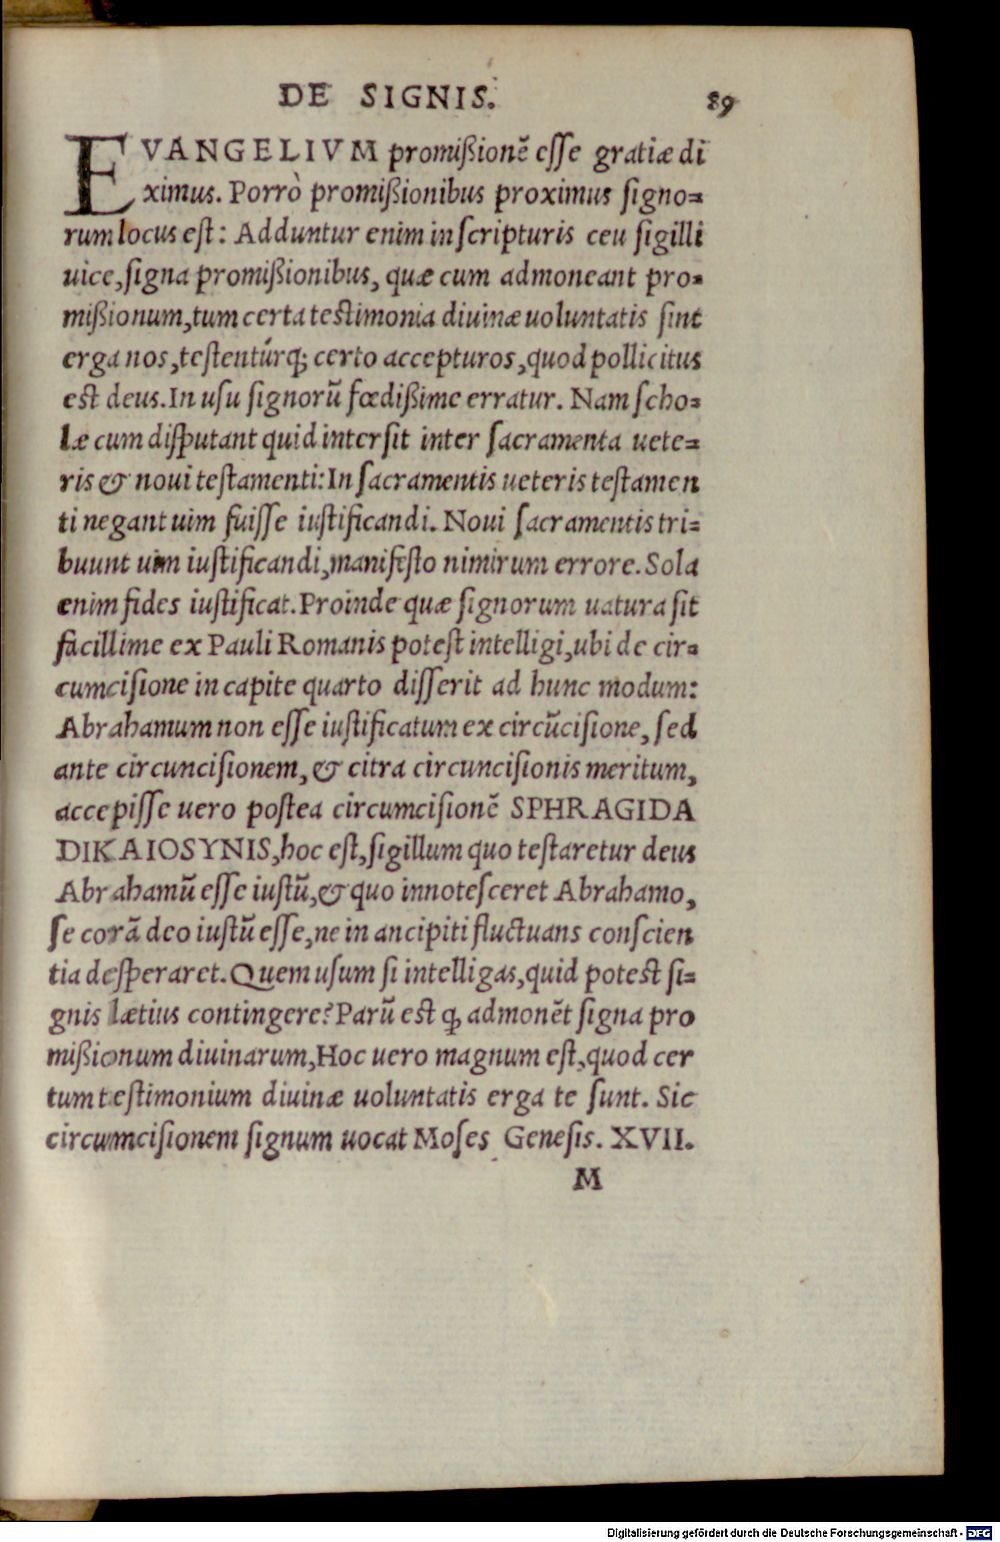 DE SIGNIS. 89
EVANGELIVM promißionẽ eſſe gratiæ di
ximus. Porrò promißionibus proximus ſigno=
rum locus eſt: Adduntur enim in ſcripturis ceu ſigilli
uice, ſigna promißionibus, quæ cum admoneant pro=
mißionum, tum certa teſtimonia diuinæ uoluntatis ſint
erga nos, teſtentúrq; certo accepturos, quod pollicitus
eſt deus. In uſu ſignorũ fœdißime erratur. Nam ſcho=
læ cum diſputant quid interſit inter ſacramenta uete=
ris & noui teſtamenti: In ſacramentis ueteris teſtamen
ti negant uim fuiſſe iuſtificandi. Noui ſacramentis tri=
buunt uim iuſtificandi, manifeſto nimirum errore. Sola
enim fides iuſtificat. Proinde quæ ſignorum uatura ſit
facillime ex Pauli Romanis poteſt intelligi, ubi de cir=
cumciſione in capite quarto diſſerit ad hunc modum:
Abrahamum non eſſe iuſtificatum ex circũciſione, ſed
ante circunciſionem, & citra circunciſionis meritum,
accepiſſe uero poſtea circumciſionẽ SPHRAGIDA
DIKAIOSYNIS, hoc eſt, ſigillum quo teſtaretur deus
Abrahamũ eſſe iuſtũ, & quo innoteſceret Abrahamo,
ſe corã deo iuſtũ eſſe, ne in ancipiti fluctuans conſcien
tia deſperaret. Quem uſum ſi intelligas, quid poteſt ſi=
gnis lætius contingere? Parũ eſt ꝙ admonẽt ſigna pro
mißionum diuinarum, Hoc uero magnum eſt, quod cer
tum teſtimonium diuinæ uoluntatis erga te ſunt. Sic
circumciſionem ſignum uocat Moſes Geneſis. XVII.
M
Digitalisierung gefördert durch die Deutsche Forschungsgemeinschaft - DFG